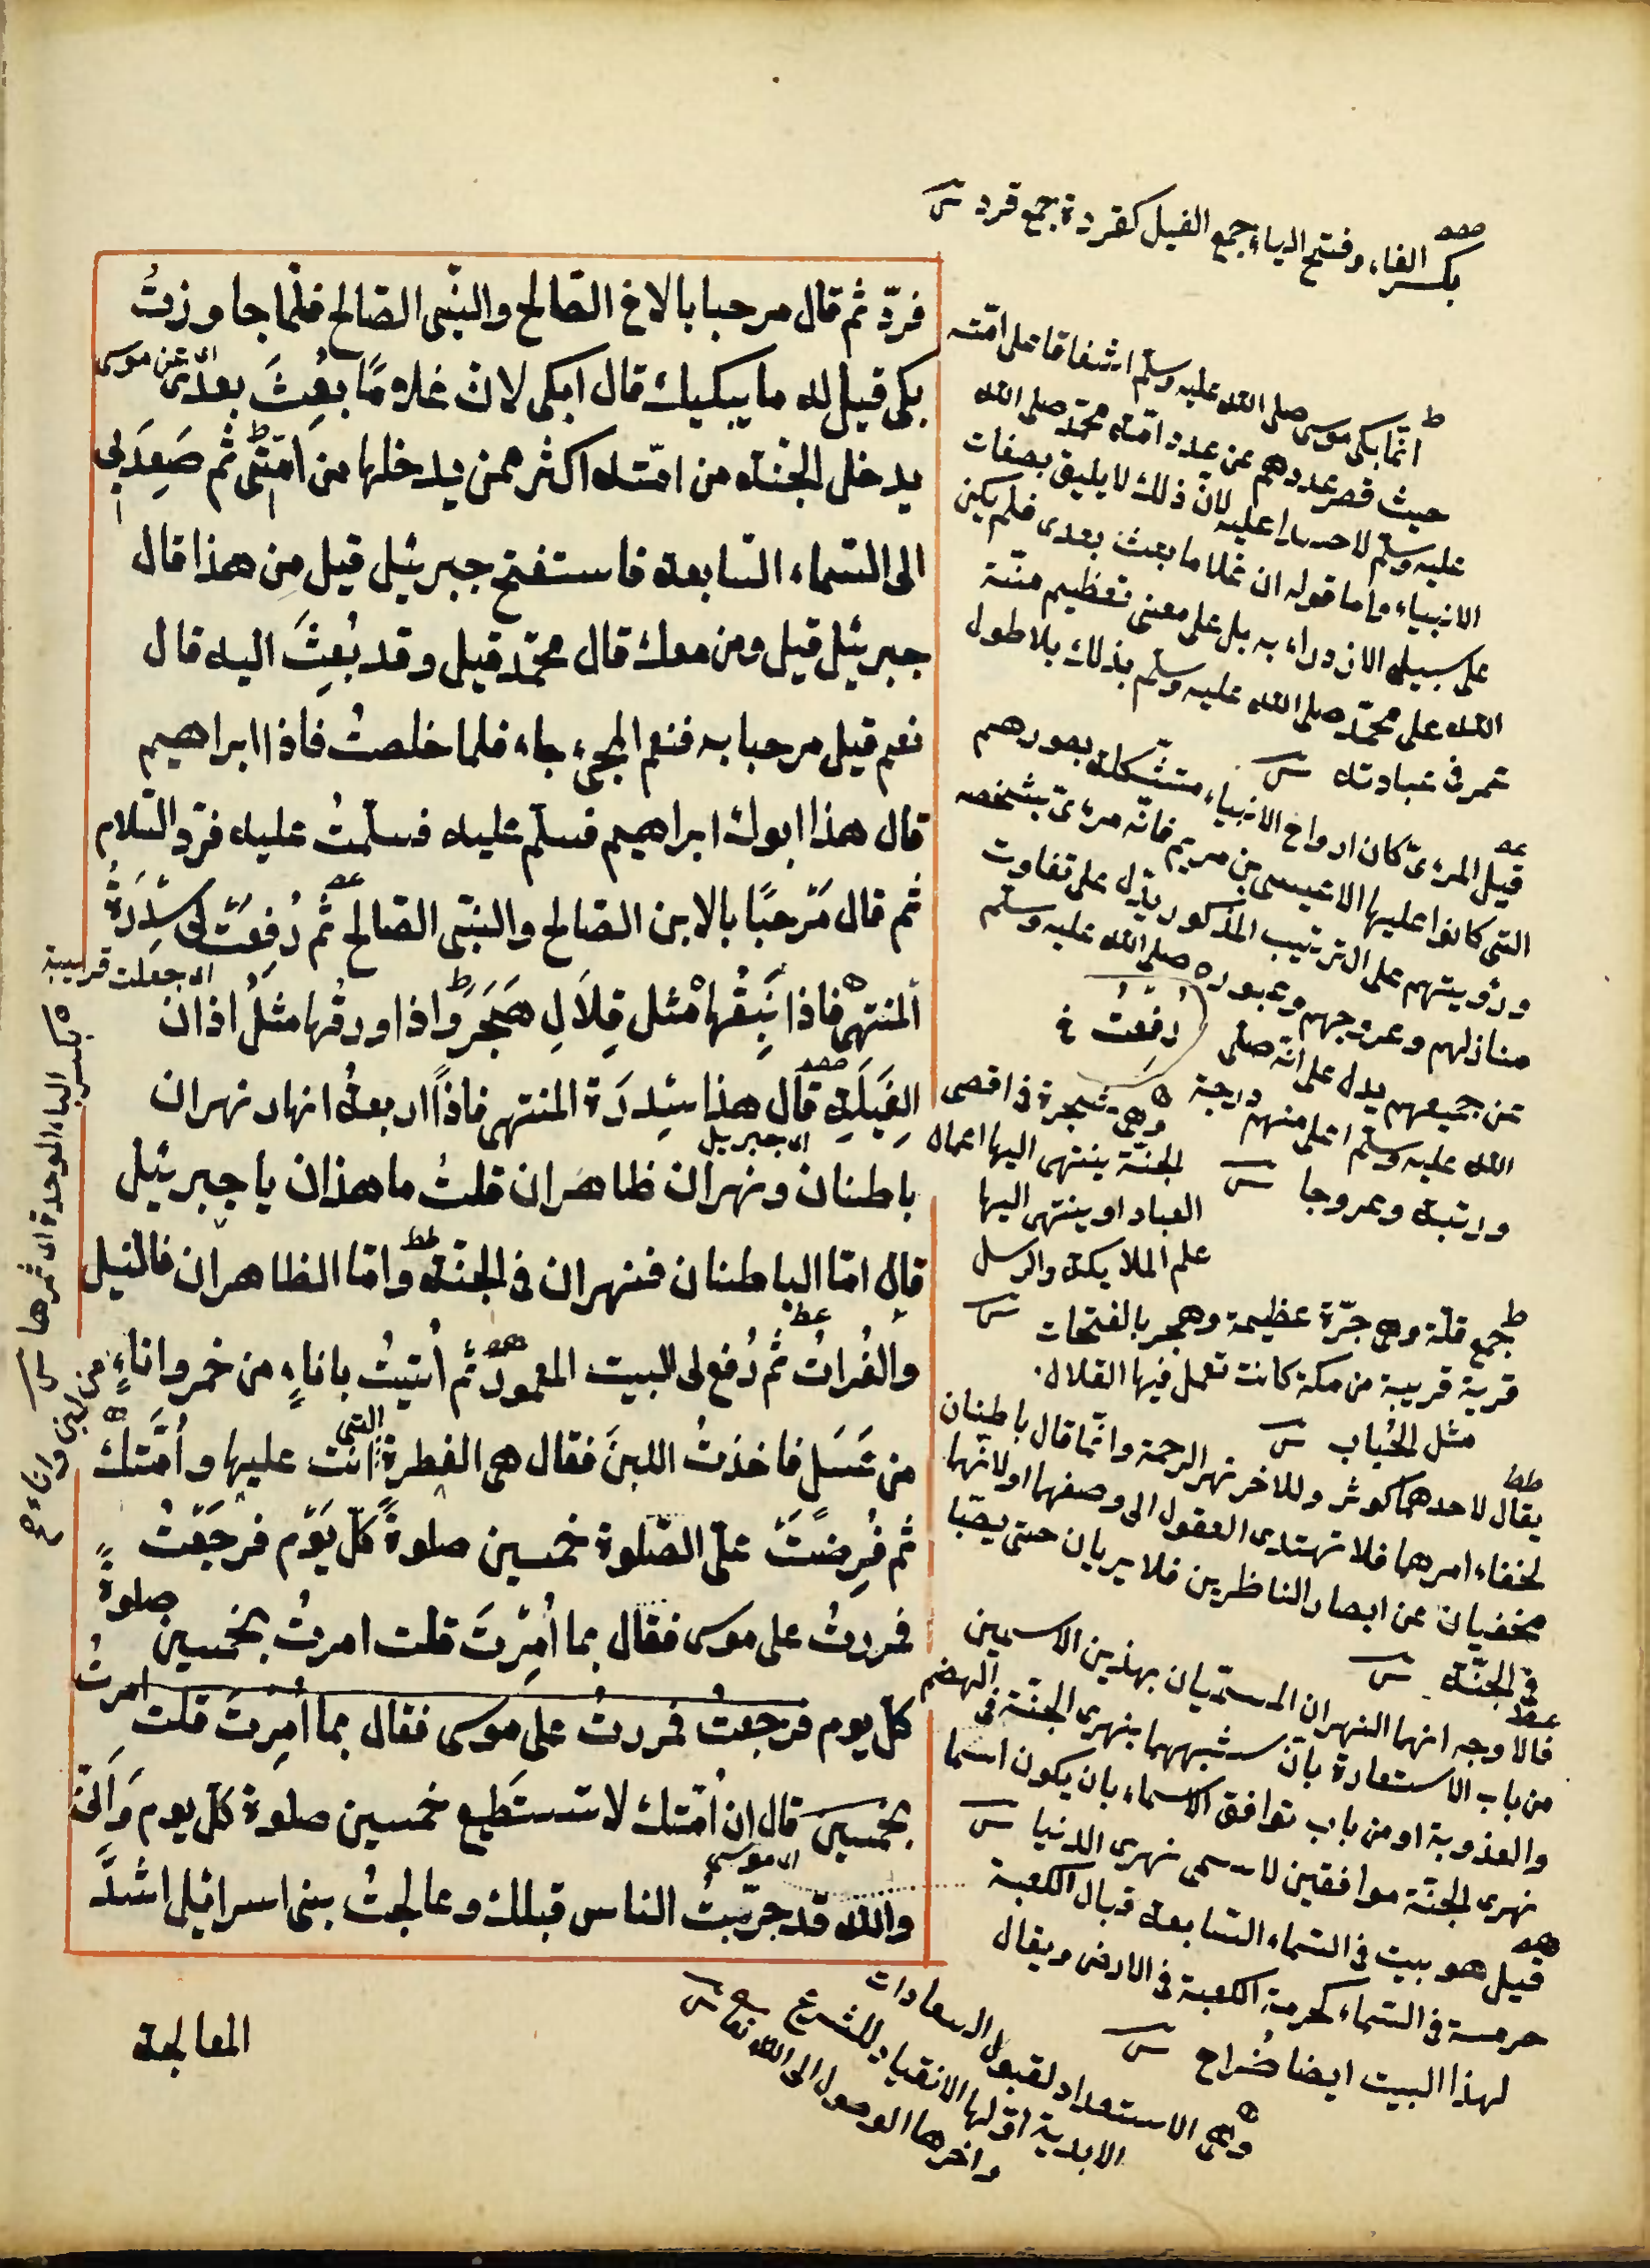 بكسر الفاء وفتح الياء جمع الفيل كقردة جمع قرد
فردّ ثم قال مرحبا بالاخ الصّالح والنّبى الصّالح فلمّا جاوزتُ
بكى قيل له ما يبكيك قال ابكى لان غلامًا بُعِثَ بعدى
اى عن موسى
يدخل الجنة من امّته اكثر ممن يدخلها من امّتى ثم صَعِدَ بى
الى السّماء السّابعة فاستفتح جبرئيل قيل من هذا قال
جبرئيل قيل ومن معك قال محمّد قيل وقد بُعِثَ اليه قال
نعم قيل مرحبا به فنعم المجىء جاء فلما خلصتُ فاذا ابراهيم
قال هذا ابوك ابراهيم فسلّم عليه فسلّمتُ عليه فردّ السّلام
ثم قال مَرْحبًا بالابن الصّالح والنّبى الصّالح ثم رُفِعَتْ لى سِدْرَةُ
اى جعلت قريبة
المنتهى فاذا نَبِقُها مثل قِلَالِ هَجَرَ واذا ورقُها مثلُ اذان
الفِيَلَةِ قال هذا سِدْرَة المنتهى فاذًا اربعةُ انهار نهران
اى جبريل
باطنان ونهران ظاهران قلتُ ما هذان يا جبرئيل
قال امّا الباطنان فنهران فى الجنّة وامّا الظاهران فالنيل
والفُراتُ ثم رُفع لى البيت المعمور ثم اُتيتُ باناءٍ من خمر واناءٍ
من لبن واناء
من عَسَل فاخذتُ اللبنَ فقال هى الفطرة التى انت عليها واُمّتك
ثم فُرِضَتْ علىّ الصّلوة خمسين صلوةً كلّ يَوْم فرجَعْت
فمررتُ على موسى فقال بما اُمِرْتَ قلت امرتُ بخمسين صلوةً
كلّ يوم فرجعتُ فمررتُ على موسى فقال بما اُمِرْتَ قلت امرتُ
بخمسين قال ان اُمّتك لا تستَطيع خمسين صلوة كلّ يوم وَانّى
اى موسى
والله قد جرّبتُ الناس قبلك وعالجتُ بنى اسرائيل اشدَّ
المعالجة
بكسر الباء الموحدة اى ثمرها
انّما بكى موسى صلى الله عليه وسلّم اشفاقا على امّته
حيث قصر عددهم عن عدد امّة محمّد صلى الله
عليه وسلّم لا حسدا عليه لانّ ذلك لا يليق بصفات
الانبياء واما قوله ان غلاما بعث بعدى فلم يكن
على سبيل الازدراء به بل على معنى تعظيم منّة
الله على محمّد صلى الله عليه وسلّم بذلك بلا طول
عمر فى عبادته
قيل المرئىّ كان ارواح الانبياء متشكلة بصورهم
التى كانوا عليها الا عيسى بن مريم فانّه مرئىّ بشخصه
ورؤيتهم على الترتيب المذكور يدّل على تفاوت
منازلهم وعروجهم وعبوره صلى الله عليه وسلّم
عن جميعهم يدل على انّه صلى
الله عليه وسلّم اعلى منهم درجة
ورتبة وعروجا
رُفِعْتُ خ
وهى شجرة فى اقصى
الجنّة ينتهى اليها اعمال
العباد او ينتهى اليها
علم الملايكة والرسل
جمع قلّة وهى جرّة عظيمة وهجر بالفتحات
قرية قريبة من مكة كانت تعمل فيها القلال
مثل الحُباب
يقال لاحدهما كوثر وللاخر نهر الرحمة وانّما قال باطنان
لخفاء امرهما فلا تهتدى العقول الى وصفهما او لانّهما
مخفيان عن ابصار الناظرين فلا يريان حتى يصبّا
فى الجنّة
فالاوجه انهما النهران المسمّيان بهذين الاسمين
من باب الاستعارة بانّ شبههما بنهرى الجنّة فى الهضم
والعذوبة او من باب توافق الاسماء بان يكون اسما
نهرى الجنّة موافقين لاسمى نهرى الدنيا
قيل هو بيت فى السّماء السّابعة قبال الكعبة
حرمته فى السّماء كحرمة الكعبة فى الارض ويقال
لهذا البيت ايضا ضُراح
وهى الاستعداد لقبول السعادات
الابدية اوّلها الانقياد للشرع
واخرها الوصول الى الله تعالى